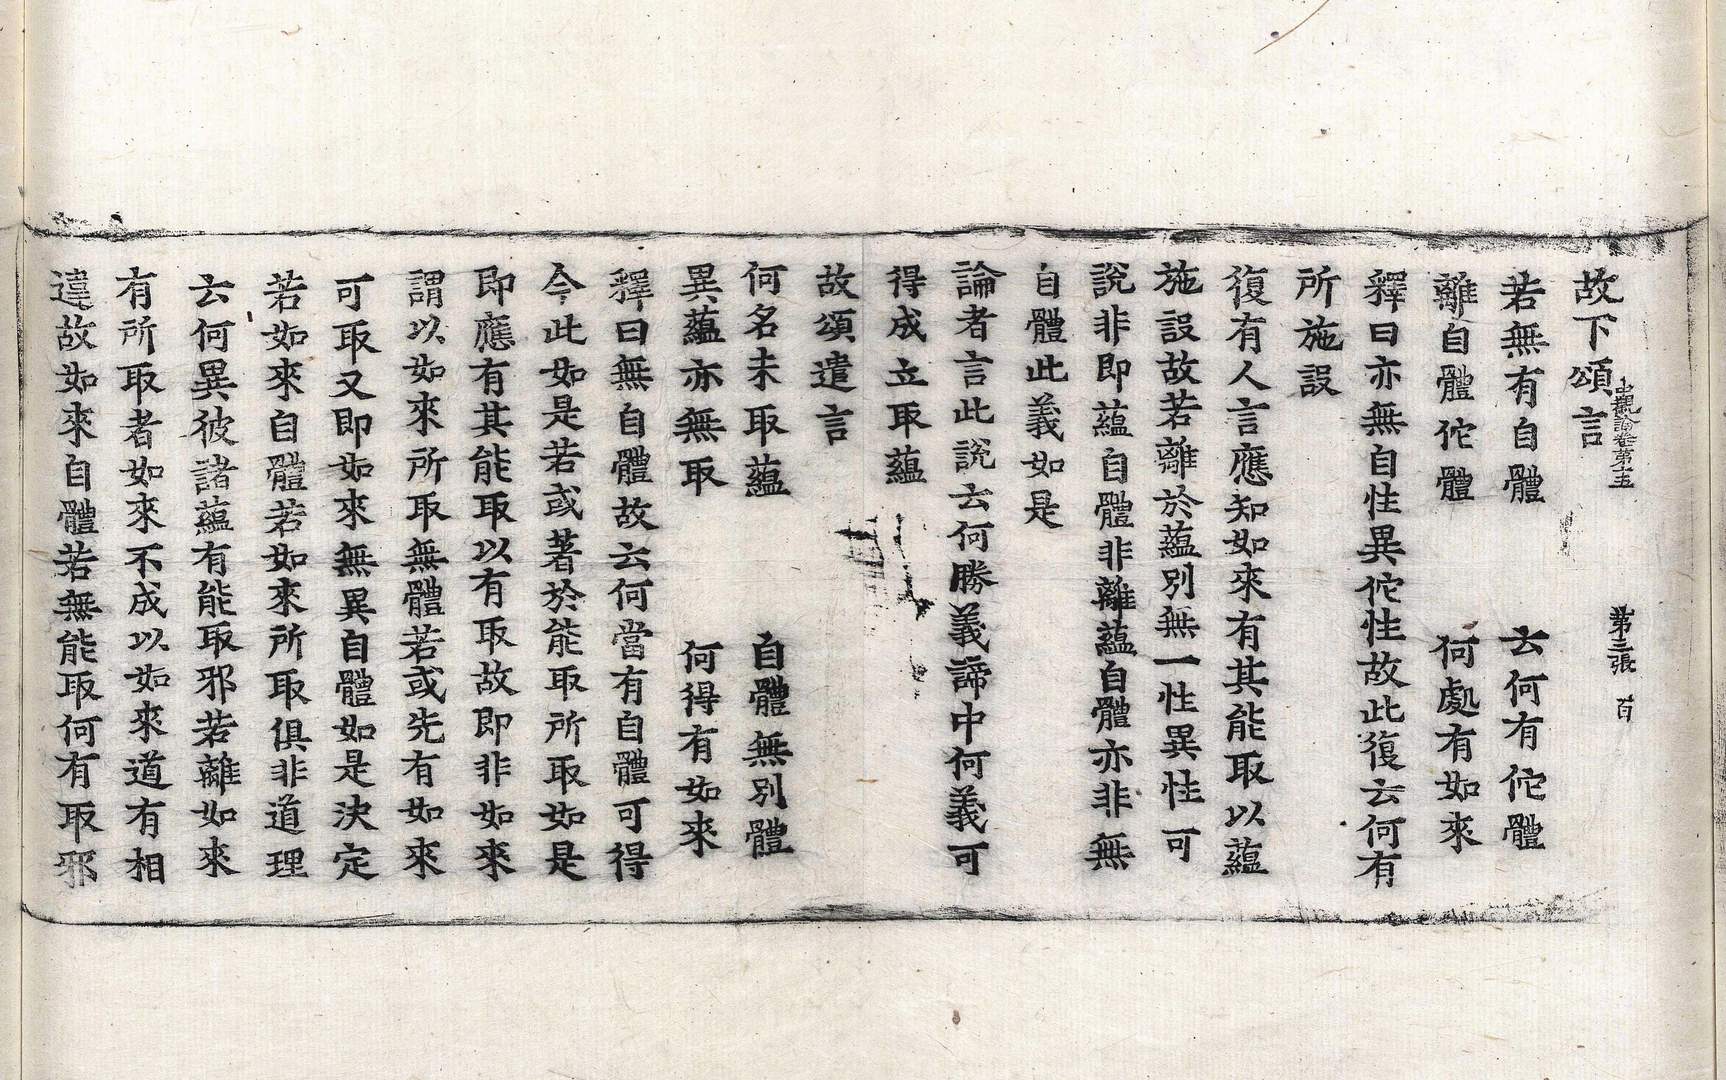 中觀論卷第十五 第三張 百
故下頌言
若無有自體 云何有佗體
離自體佗體 何處有如來
釋曰亦無自性異佗性故此復云何有
所施設
復有人言應知如來有其能取以蘊
施設故若離於蘊別無一性異性可
說非即蘊自體非離蘊自體亦非無
自體此義如是
論者言此說云何勝義諦中何義可
得成立取蘊
故頌遣言
何名未取蘊 自體無別體
異蘊亦無取 何得有如來
釋曰無自體故云何當有自體可得
今此如是若或著於能取所取如是
即應有其能取以有取故即非如來
謂以如來所取無體若或先有如來
可取又即如來無異自體如是決定
若如來自體若如來所取俱非道理
云何異彼諸蘊有能取邪若離如來
有所取者如來不成以如來道有相
違故如來自體若無能取何有取邪